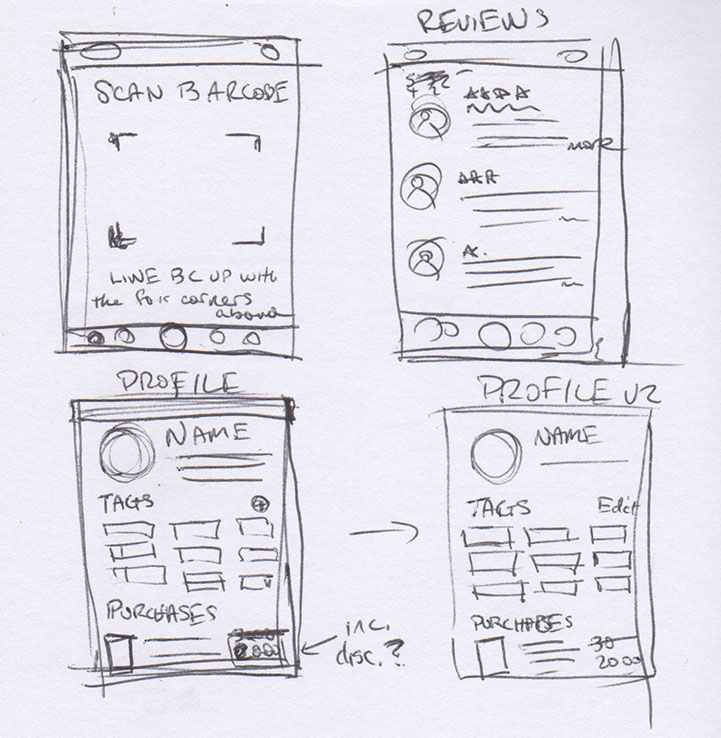 REVIEWS
SCAN BARCODE
LINE BC UP WITH
the four corners
above
more
PROFILE
NAME
TAGS
PURCHASES
20.00
inc.
disc.?
PROFILE V2
NAME
TAGS Edit
PURCHASES
30
20.00